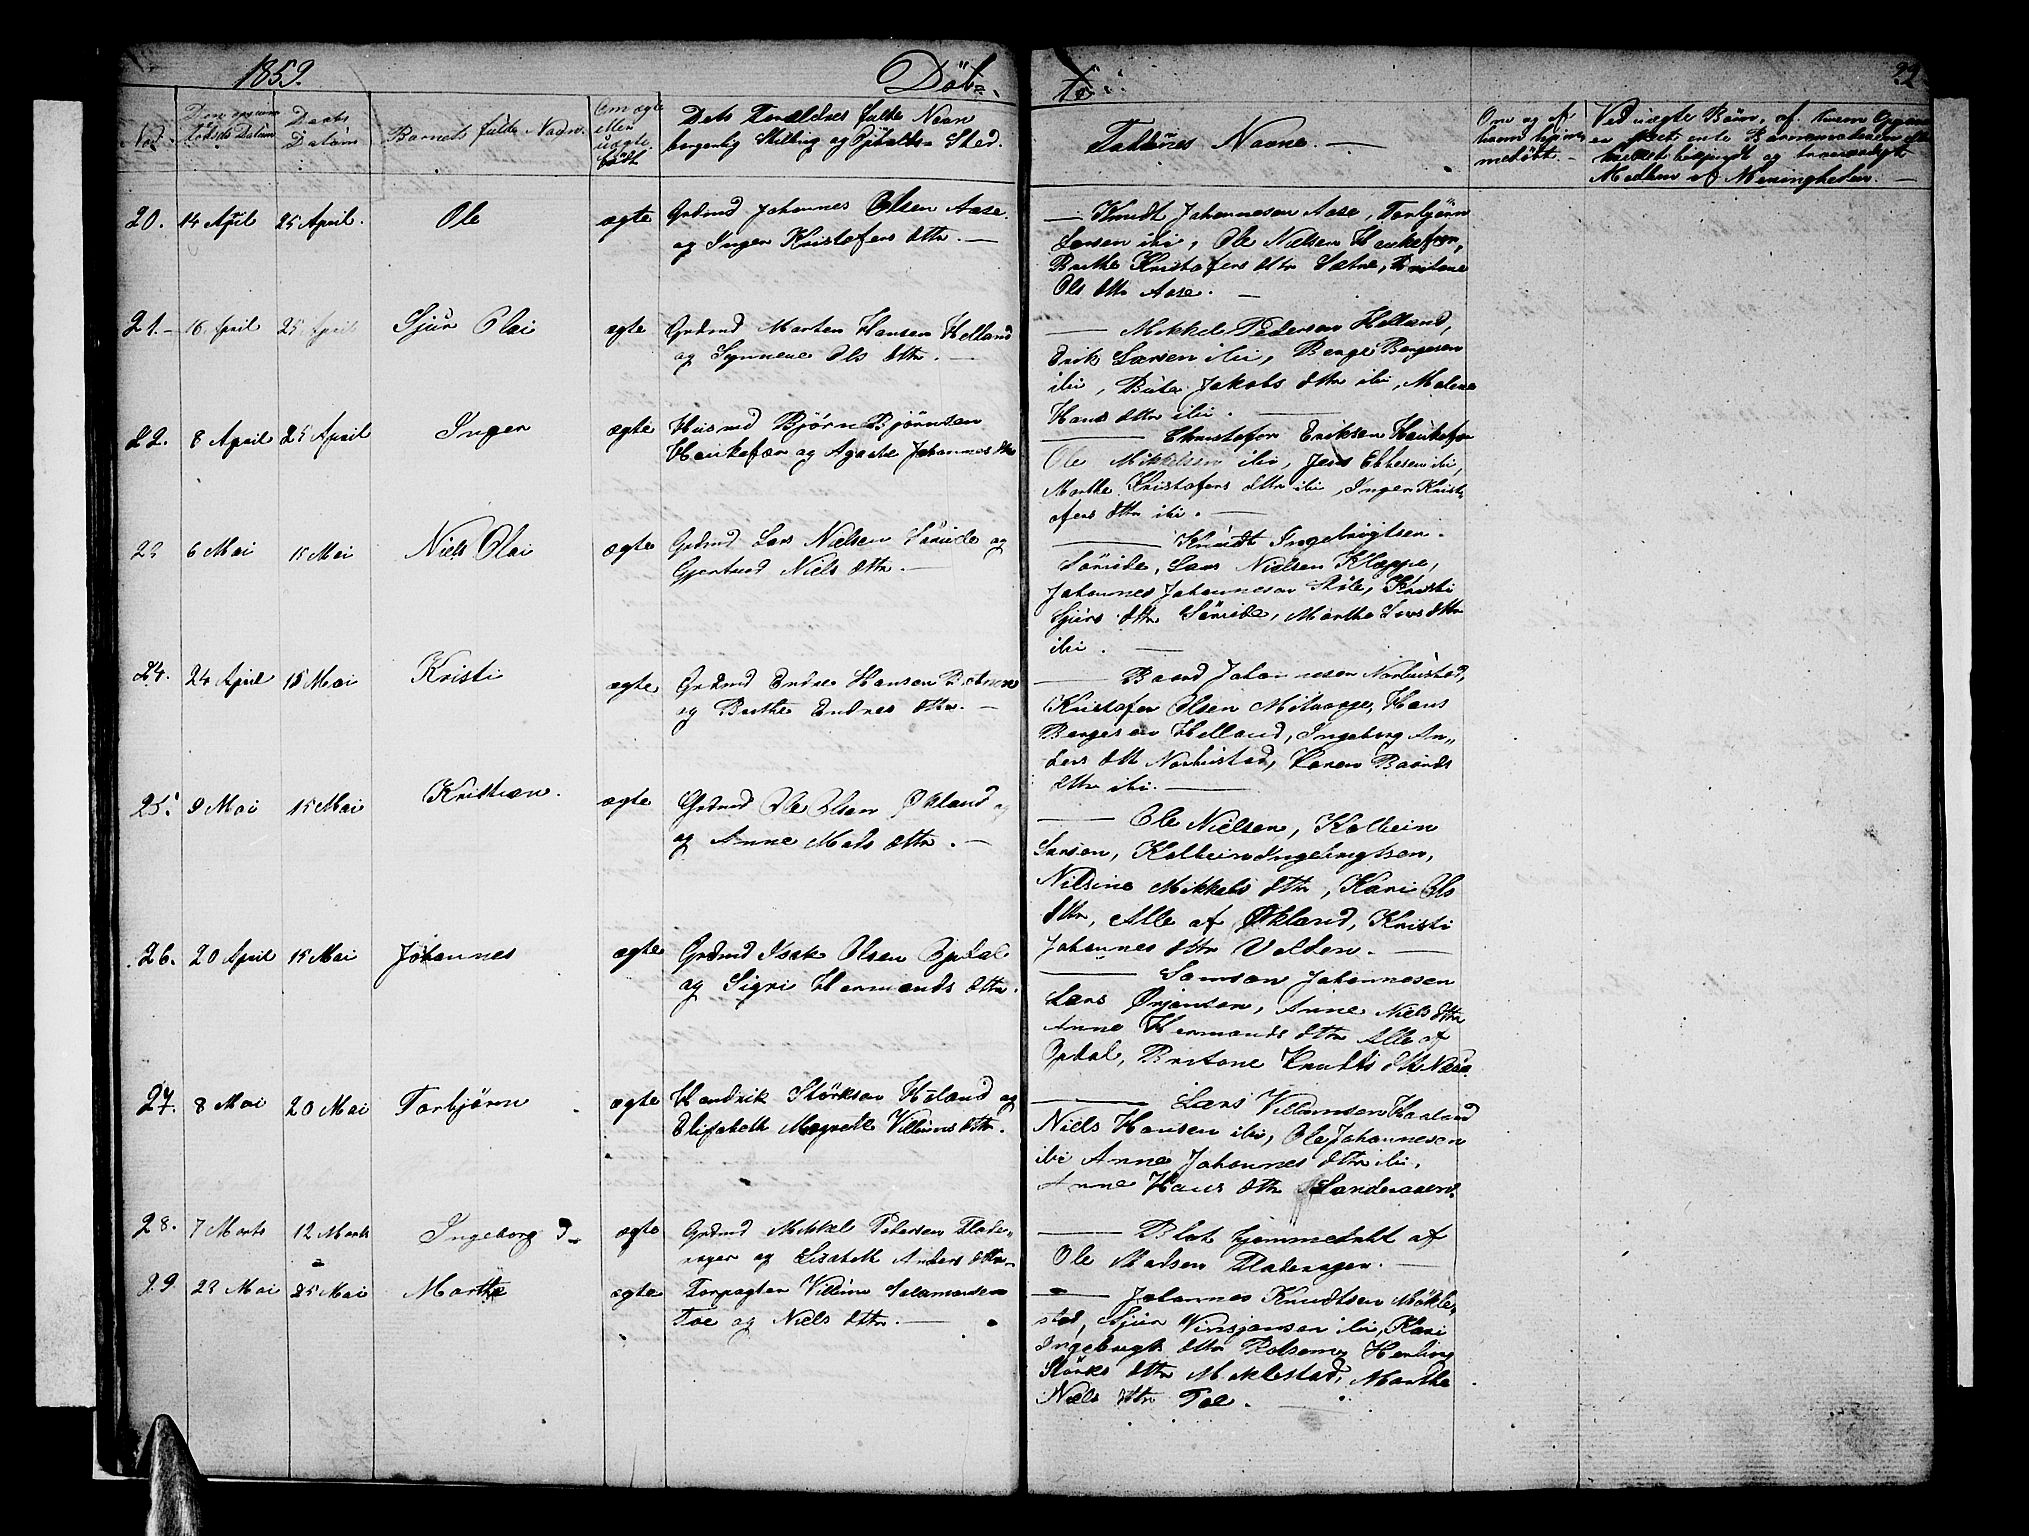 1859.
Döb-
te.
No.
Dets
Datum
Barnets fulde Navn.
Om ægte
eller
uægte
födt
Dets Forældres fulde Navn
borgerlig Stilling og Opholds-Sted.
Faddernes Navne. —
Om og af
hvem hjem-
medöbt. —
Ved uægte Börn, af hvem
Medlem af Menigheden. —
20. 14 April 25 April. Ole ægte Grdmd Johannes Olsen Aase
og Inger Kristofers Dttr. —
— Knudt Johannesen Aase, Torbjörn
Larsen ibi, Ole Nielsen Haukefær,
Berthe Kristofers Dttr Sætre, Britone
Ols Dttr Aase. —
21. — 16 April 25 April Sjur Olai ægte Grdmd Morten Hansen Helland
og Synneve Ols Dttr. —
— Mikkel Pedersen Helland,
Erik Larsen ibi, Berge Bergesen
ibi, Brita Jakobs Dttr ibi, Malene
Hans Dttr ibi. —
22. 8 April 25 April Inger ægte Husmd Bjørn Bjørnsen
Haukefær og Agathe Johannes Dttr
— Christofer Eriksen Haukefær
Ole Mikkelsen ibi, Jens Ebbesen ibi,
Marthe Kristofers Dttr ibi, Inger Krist-
ofers Dttr ibi. —
23 6 Mai 15 Mai Niels Olai ægte Grdmd Lars Nielsen Söreide og
Gjertrud Niels Dttr. —
— Knudt Ingebrigtsen
Söreide, Lars Nielsen Kleppe,
Johannes Johannesen Støle, Kristi
Sjurs Dttr Söreide, Marthe Lars Dttr
ibi. —
24. 24 April 15 Mai Kristi ægte Grdmd Endre Hansen
og Berthe Endres Dttr. —
— Baard Johannesen Norhustad,
Kristofer Olsen Mitvaage, Hans
Bergesen Helland, Ingeborg An-
ders Dtt Norhustad, Karen Baards
Dttr ibi. —
25. 9 Mai 15 Mai Kristian. ægte Grdmd Ole Olsen Økland og
og Anne Mads Dttr. —
— Ole Nielsen, Kolbein
Larsen, Kolbein Ingebrigtsen,
Nilsine Mikkels Dttr, Kari Ols
Dttr, Alle af Økland, Kristi
Johannes Dttr Valden. —
26. 20 April 15 Mai Johannes ægte Grdmd Isak Olsen Opdal
og Sigri Hermands Dttr.
— Samson Johannesen
Lars Ørjansen, Anne Niels Dttr
Anne Hermands Dttr Alle af
Opdal, Britone Knudts Dtt
27. 8 Mai 20 Mai Torbjörn ægte Hendrik Störksen Haaland og
Elisabeth Magrete Villums Dttr.
— Lars Villumsen Haaland
Niels Hansen ibi, Ole Johannesen
ibi Anne Johannes Dttr ibi,
Anne Hans Dttr
28. 7 Marts 12 Marts Ingeborg ægte Grdmd Mikkel Petersen Flade-
rager og Lisabeth Anders Dttr
— Blot hjemmedöbt af
Ole Madsen Fladerager. —
29. 23 Mai 25 Mai Marthe ægte Forpagter Villum Salamonsen
Toe og Niels Dttr. —
— Johannes Knudtsen Mökle-
stad, Sjur Vinsjansen ibi, Kari
Ingebrigts Dttr Rolsemo, Herling
Störks Dttr Möklestad, Marthe
Niels Dttr Toe. —